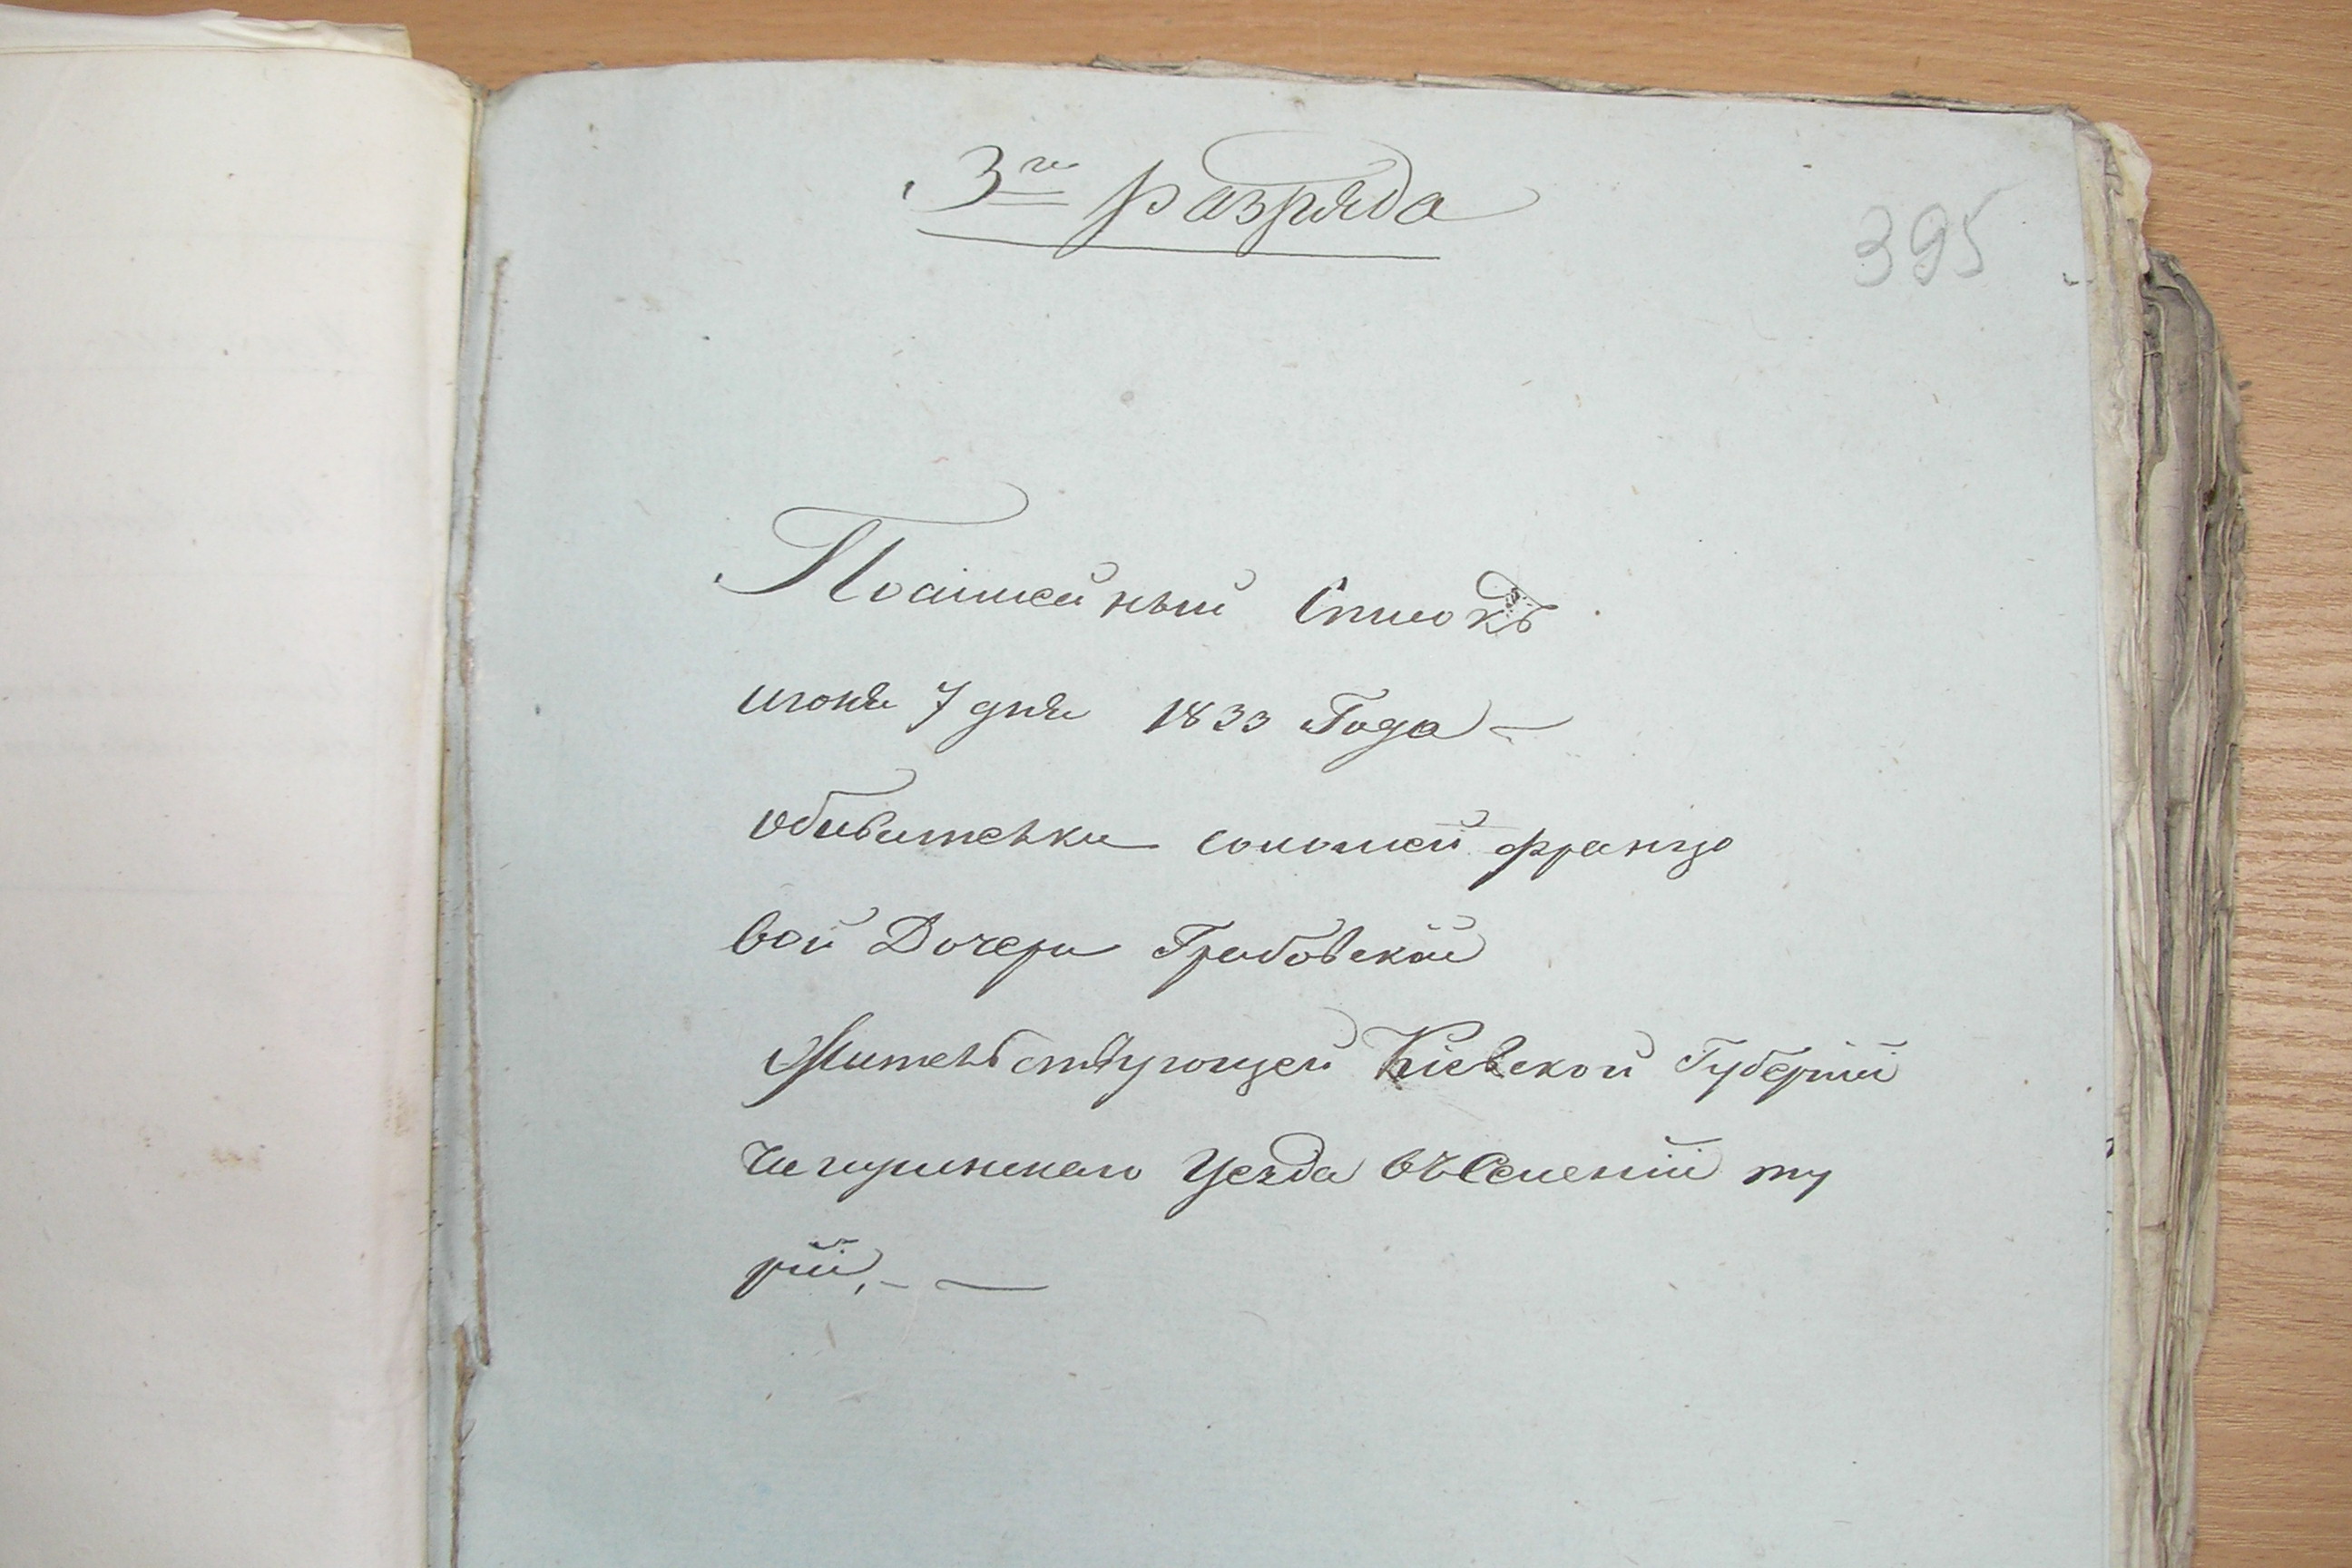 3го разряда
395
Посимейный Списокъ
июня 7 дня 1833 Года —
обивательки соломеи францо
вой Дочери Грабовской
Жительствующей Кіевской Губерніи
Чигиринскаго Уезда въ Селеніи ту
ріи, — —